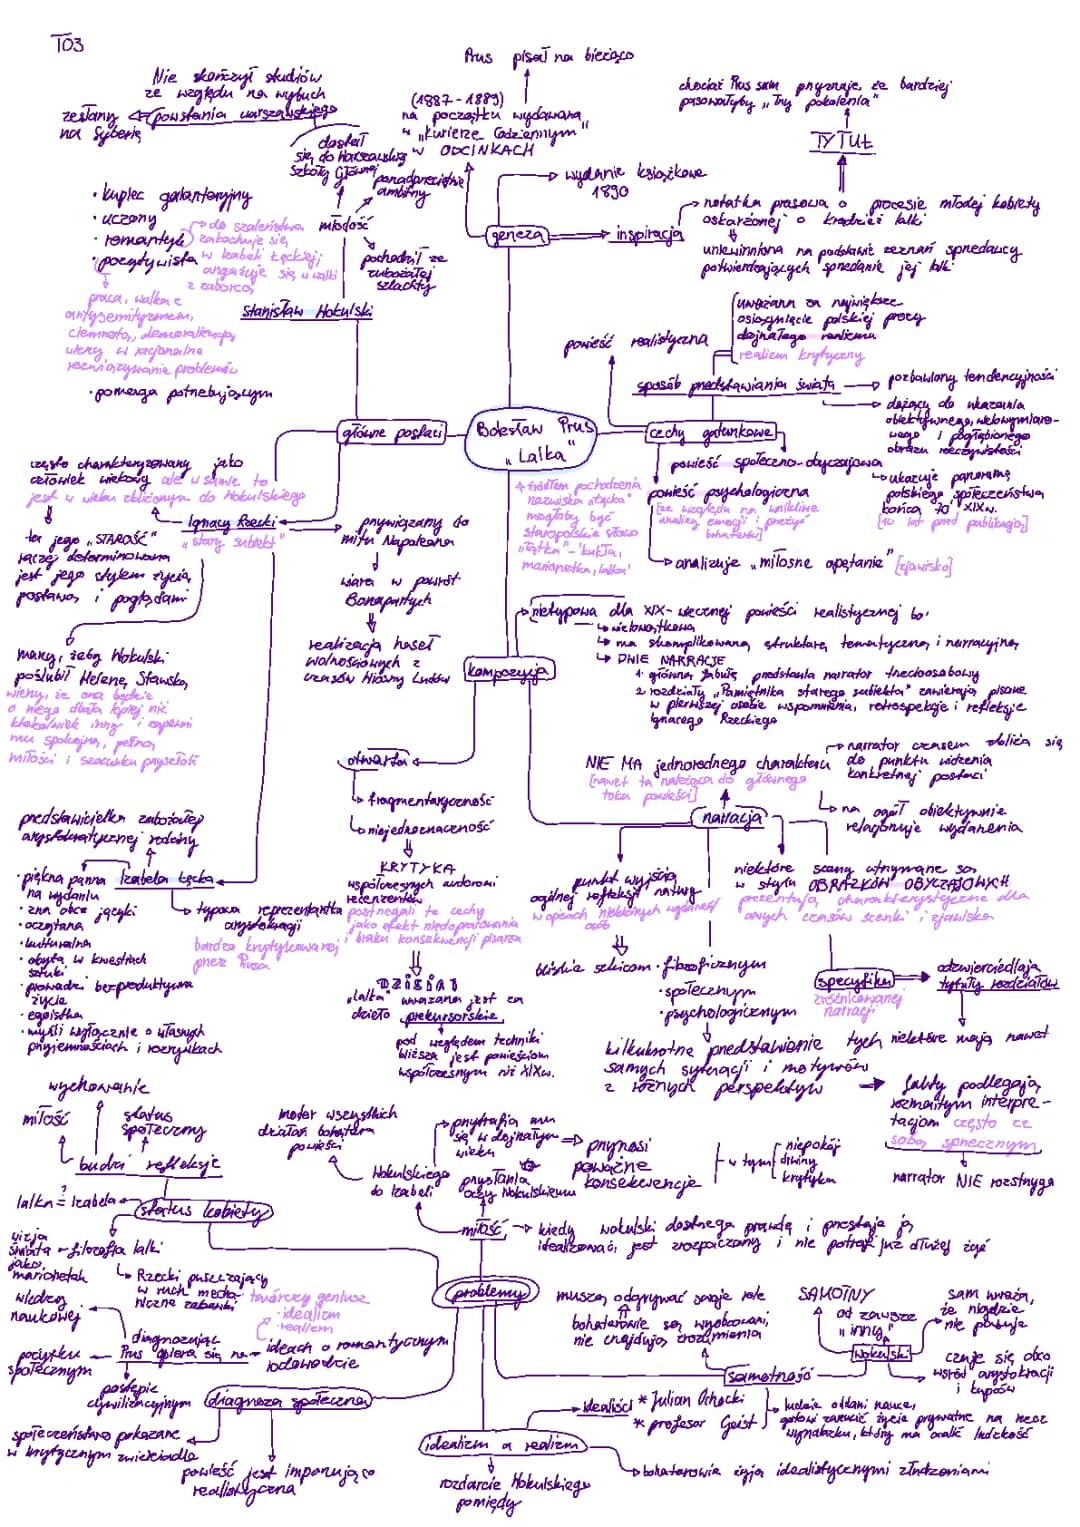 T03
Nie skończył studiów
ze względu na wybuch
powstania warszawskiego
zesłany
na Syberię
dostał
się do Warszawskiej
Szkoły Głównej
ponadprzeciętnie
ambitny
młodość
pochodził ze
zubożałej
szlachty
• kupiec galanteryjny
• uczony
• romantyk
• pozytywista
do szaleństwa
zakochuje się
w Izabeli Łęckiej,
angażuje się w walki
z zaborcą
praca, walka z
antysemityzmem,
ciemnotą, demoralizacją,
wierzy w racjonalne
rozwiązywanie problemów
• pomaga potrzebującym
Stanisław Wokulski
Prus pisał na bieżąco
(1887-1889)
na początku wydawana
w "Kurierze Codziennym"
w ODCINKACH
wydanie książkowe
1890
geneza
inspiracja
chociaż Prus sam przyznaje, że bardziej
pasowałyby "Trzy pokolenia"
TYTUŁ
notatka prasowa o procesie młodej kobiety
oskarżonej o kradzież lalki
uniewinniona na podstawie zeznań sprzedawcy
potwierdzających sprzedanie jej lalki
uważana za największe
osiągnięcie polskiej prozy
dojrzałego realizmu
realizm krytyczny
powieść realistyczna
sposób przedstawiania świata
pozbawiony tendencyjności
dążący do ukazania
obiektywnego, wielowymiaro-
wego i pogłębionego
obrazu rzeczywistości
główne postaci
Bolesław Prus
"Lalka"
cechy gatunkowe
powieść społeczno-obyczajowa
ukazuje panoramę
polskiego społeczeństwa
końca 70' XIXw.
[10 lat przed publikacją]
powieść psychologiczna
[ze względu na wnikliwe
analizy emocji i przeżyć
bohaterów]
analizuje "miłosne opętanie" [zjawisko]
źródłem pochodzenia
nazwiska "Łęcka"
mogłoby być
staropolskie słowo
"łątka" - 'kukła,
marionetka, lalka'
często charakteryzowany jako
człowiek wiekowy ale w sumie to
jest w wieku zbliżonym do Wokulskiego
Ignacy Rzecki
"stary subiekt"
ta jego "STAROŚĆ"
raczej determinowana
jest jego stylem życia,
postawą i poglądami
przywiązany do
mitu Napoleona
wiara w powrót
Bonapartych
realizacja haseł
wolnościowych z
czasów Wiosny Ludów
marzy, żeby Wokulski
poślubił Helenę Stawską,
wierzy, że ona będzie
o niego dbała lepiej niż
ktokolwiek inny i zapewni
mu spokojną, pełną
miłości i szacunku przyszłość
kompozycja
nietypowa dla XIX-wiecznej powieści realistycznej bo:
wielowątkowa
ma skomplikowaną strukturę tematyczną i narracyjną
DWIE NARRACJE
1. główną fabułę przedstawia narrator trzecioosobowy
2. rozdziały "Pamiętnika starego subiekta" zawierają pisane
w pierwszej osobie wspomnienia, retrospekcje i refleksje
Ignacego Rzeckiego
otwarta
fragmentaryczność
niejednoznaczność
KRYTYKA
współczesnych autorowi
recenzentów
postrzegali te cechy
jako efekt niedopracowania
i braku konsekwencji pisarza
DZISIAJ
"Lalka" uważana jest za
dzieło prekursorskie
pod względem techniki
bliższa jest powieściom
współczesnym niż XIXw.
NIE MA jednorodnego charakteru
[nawet ta należąca do głównego
toku powieści]
narrator czasem zbliża się
do punktu widzenia
konkretnej postaci
na ogół obiektywnie
relacjonuje wydarzenia
narracja
punkt wyjścia
ogólnej refleksji natury
w opisach niektórych wydarzeń/
osób
bliskie szkicom • filozoficznym
• społecznym
• psychologicznym
niektóre sceny utrzymane są
w stylu OBRAZKÓW OBYCZAJOWYCH
prezentują charakterystyczne dla
owych czasów scenki i zjawiska
specyfika
zróżnicowanej
narracji
odzwierciedlają
tytuły rozdziałów
niektóre mają nawet
kilkukrotne przedstawienie tych
samych sytuacji i motywów
z różnych perspektyw
fakty podlegają
rozmaitym interpre-
tacjom często ze
sobą sprzecznym
narrator NIE rozstrzyga
przedstawicielka zubożałej
arystokratycznej rodziny
Izabela Łęcka
• piękna panna
na wydaniu
• zna obce języki
• oczytana
• kulturalna
• obyta w kwestiach
sztuki
• prowadzi bezproduktywne
życie
• egoistka
• myśli wyłącznie o własnych
przyjemnościach i rozrywkach
typowa reprezentantka
arystokracji
bardzo krytykowanej
przez Prusa
wychowanie
miłość
status
społeczny
budzi refleksje
lalka = Izabela
?
status kobiety
wizja
świata
jako
marionetek
filozofia lalki
Rzecki puszczający
w ruch mecha-
niczne zabawki
motor wszystkich
działań bohatera
powieści
Wokulskiego
do Izabeli
przytrafia mu
się w dojrzałym
wieku
przynosi
poważne
konsekwencje
w tym
niepokój
drwiny
krytyka
przysłania
oczy Wokulskiemu
miłość
kiedy Wokulski dostrzega prawdę i przestaje ją
idealizować, jest zrozpaczony i nie potrafi już dłużej żyć
problemy
wiedzę
naukowej
twórczy geniusz
• idealizm
• realizm
diagnozując
Prus opiera się na
ideach o romantycznym
rodowodzie
pożytku
społecznym
postępie
cywilizacyjnym
diagnoza społeczna
społeczeństwo pokazane
w krytycznym zwierciadle
powieść jest imponująco
realistyczna
muszą odgrywać swoje role
bohaterowie są wyobcowani,
nie znajdują zrozumienia
samotność
SAMOTNY
od zawsze
"inny"
Wokulski
sam uważa,
że nigdzie
nie pasuje
czuje się obco
wśród arystokracji
i kupców
idealiści
* Julian Ochocki
* profesor Geist
ludzie oddani nauce,
gotowi zarzucić życie prywatne na rzecz
wynalazku, który ma ocalić ludzkość
idealizm a realizm
rozdarcie Wokulskiego
pomiędzy
bohaterowie żyją idealistycznymi złudzeniami